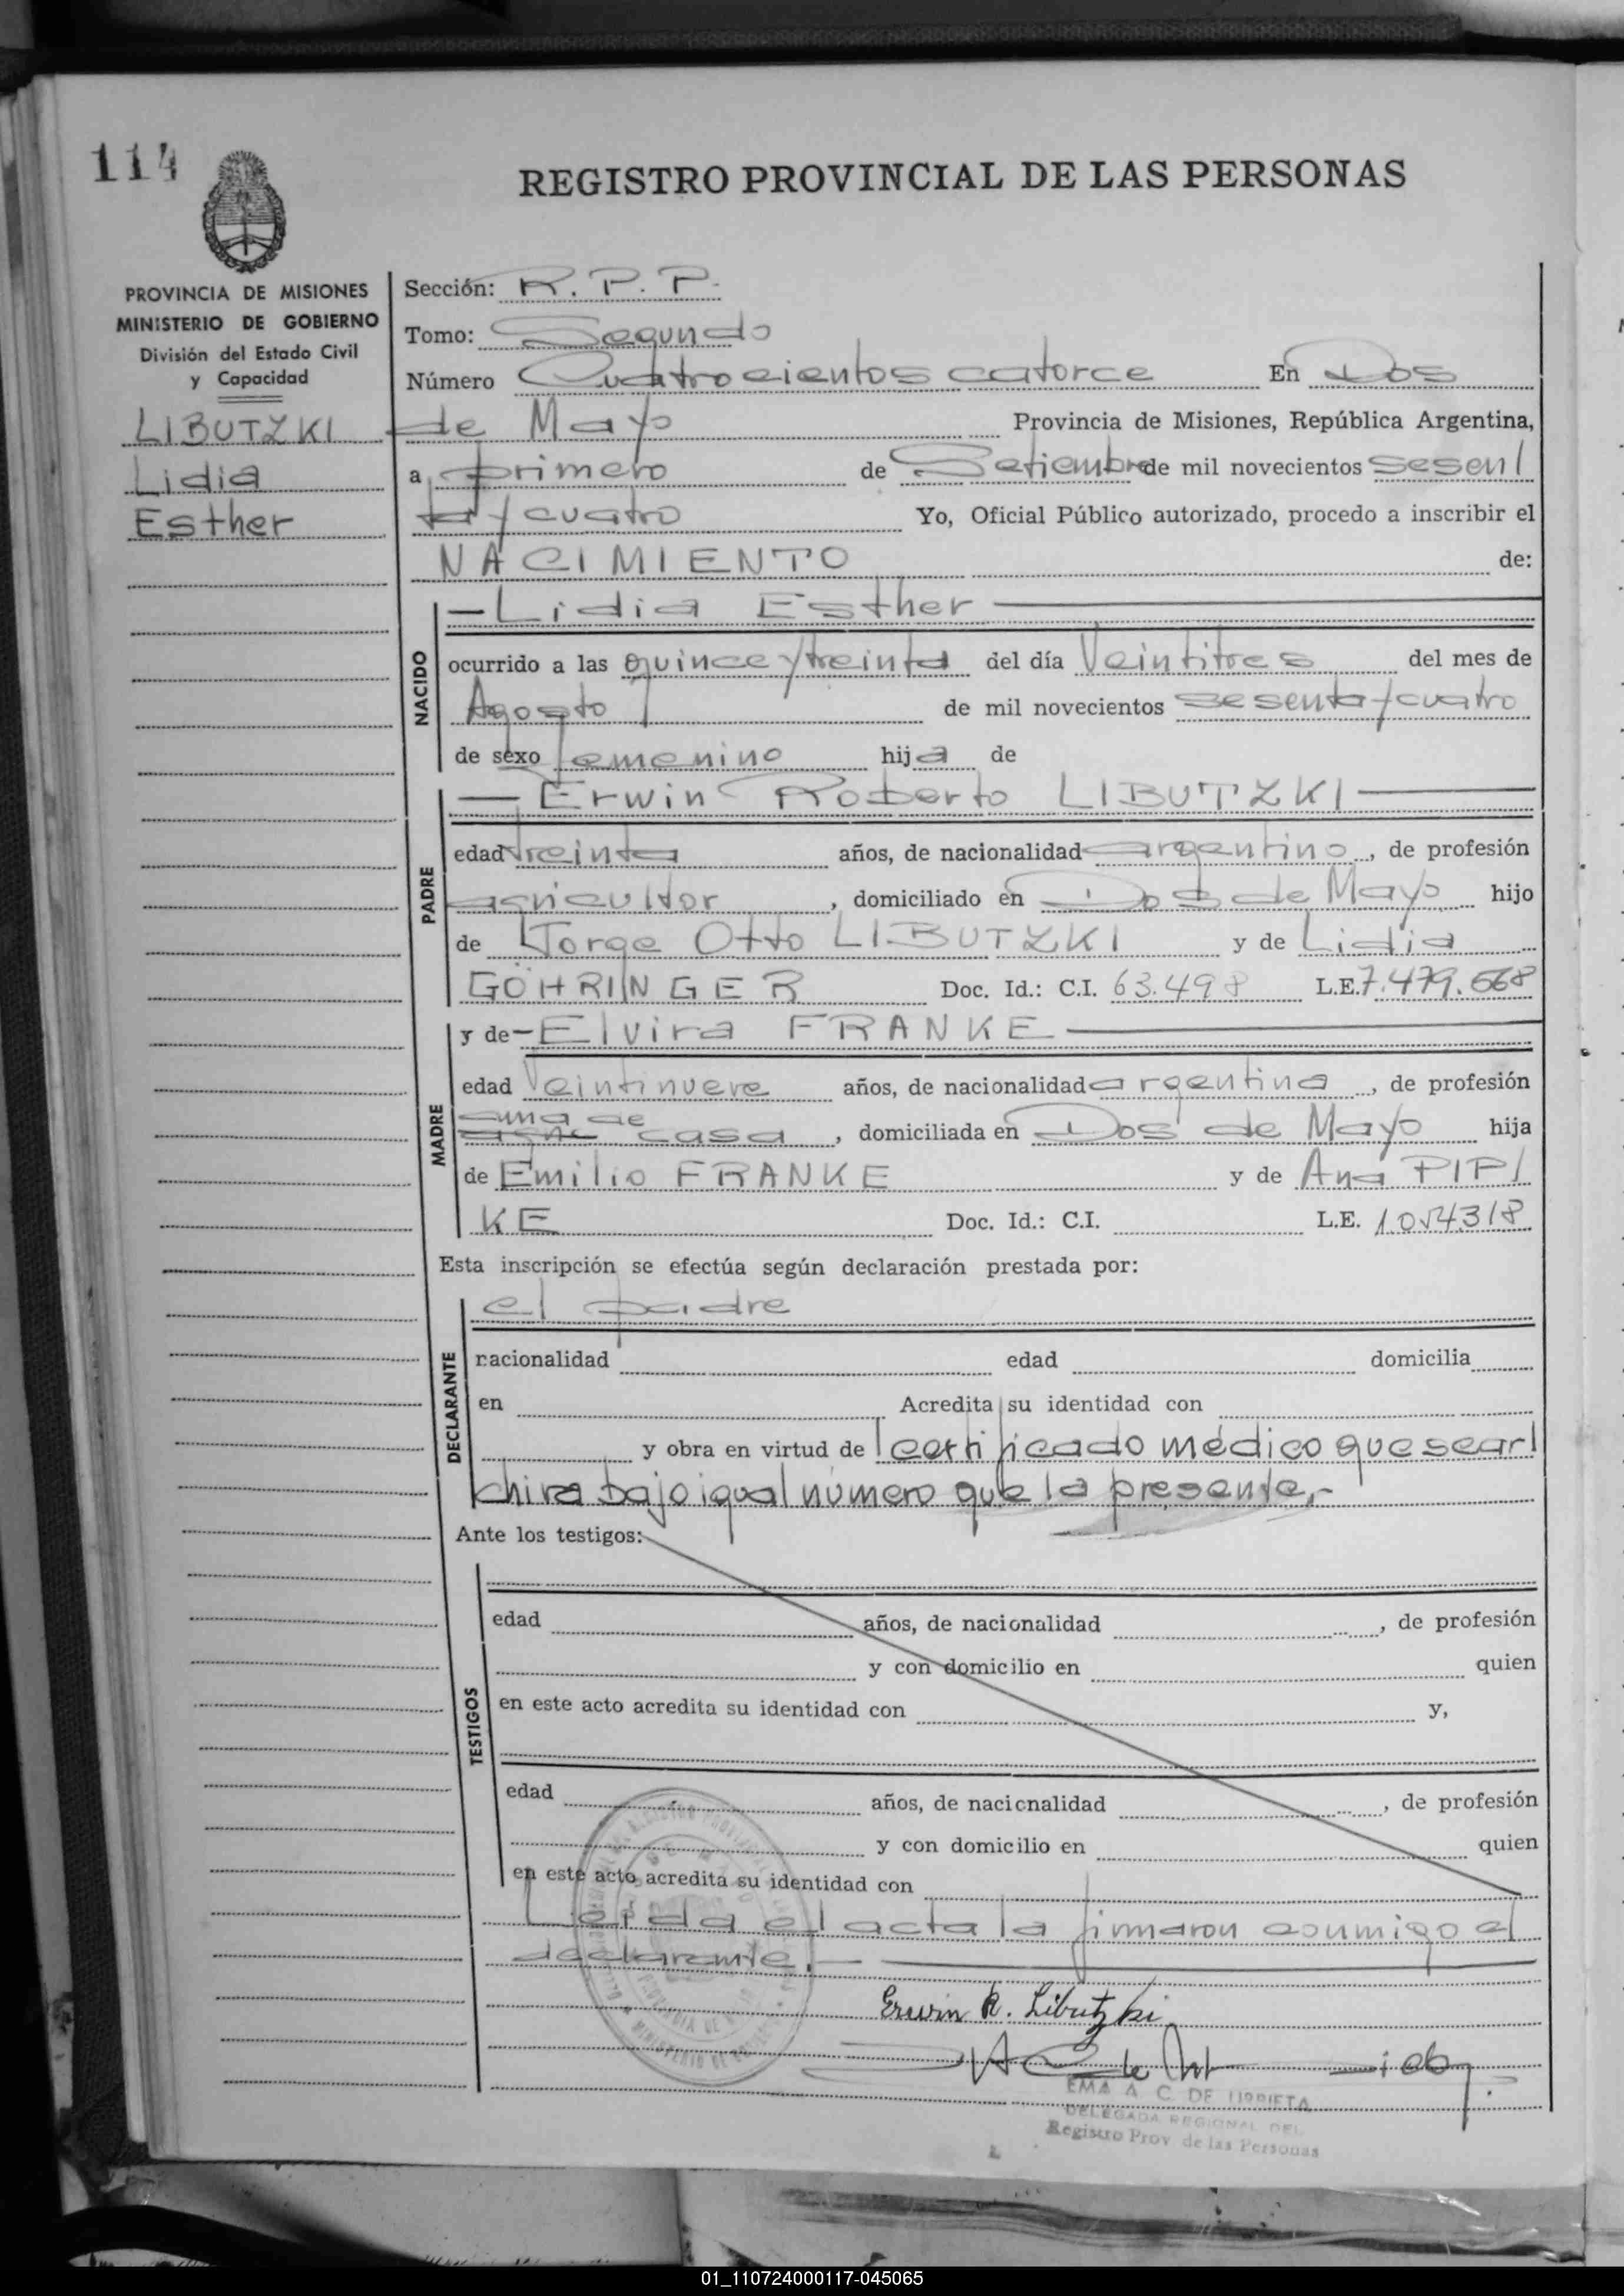 114
REGISTRO PROVINCIAL DE LAS PERSONAS
PROVINCIA DE MISIONES
MINISTERIO DE GOBIERNO
División del Estado Civil
y Capacidad
LIBUTZKI
Lidia
Esther
Sección: R. P. P.
Tomo: Segundo
Número Cuatrocientos catorce En Dos
de Mayo Provincia de Misiones, República Argentina,
a primero de Setiembre de mil novecientos sesen
ta y cuatro Yo, Oficial Público autorizado, procedo a inscribir el
NACIMIENTO de:
NACIDO
— Lidia Esther —
ocurrido a las quince y treinta del día Veintitres del mes de
Agosto de mil novecientos sesenta y cuatro
de sexo femenino hija de
PADRE
— Erwin Roberto LIBUTZKI —
edad treinta años, de nacionalidad argentino, de profesión
agricultor, domiciliado en Dos de Mayo hijo
de Jorge Otto LIBUTZKI y de Lidia
GÖHRINGER Doc. Id.: C.I. 63.498 L.E. 7.479.668
MADRE
y de — Elvira FRANKE —
edad Veintinueve años, de nacionalidad argentina, de profesión
ama de
casa, domiciliada en Dos de Mayo hija
de Emilio FRANKE y de Ana PIP
KE Doc. Id.: C.I. L.E.
Esta inscripción se efectúa según declaración prestada por:
DECLARANTE
el padre
nacionalidad edad domicilia
en Acredita su identidad con
y obra en virtud de certificado médico que se ar
chiva bajo igual número que la presente.-
Ante los testigos:
TESTIGOS
edad años, de nacionalidad , de profesión
y con domicilio en quien
en este acto acredita su identidad con y,
edad años, de nacionalidad , de profesión
y con domicilio en quien
en este acto acredita su identidad con
Leída el acta la firmaron conmigo el
declarante.—
Erwin R. Libutzki
EMA A. C. DE URRIETA
DELEGADA REGIONAL DEL
Registro Prov. de las Personas
01_110724000117-045065